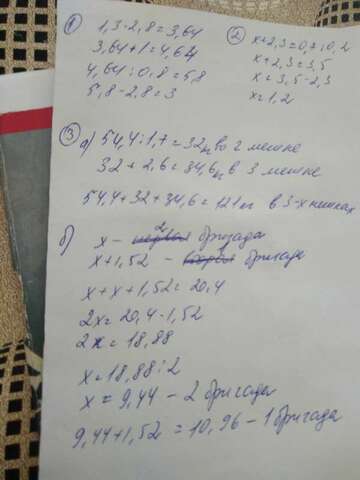 ①
1,3·2,8=3,64
3,64+1=4,64
4,64:0,8=5,8
5,8-2,8=3
②
x+2,3=0,7:0,2
x+2,3=3,5
x=3,5-2,3
x=1,2
③ а) 54,4:1,7=32кг во 2 мешке
32+2,6=34,6кг в 3 мешке
54,4+32+34,6=121кг в 3-х мешках
б) x - 2 бригада
x+1,52 - бригада
x+x+1,52=20,4
2x=20,4-1,52
2x=18,88
x=18,88:2
x=9,44-2 бригада
9,44+1,52=10,96-1 бригада